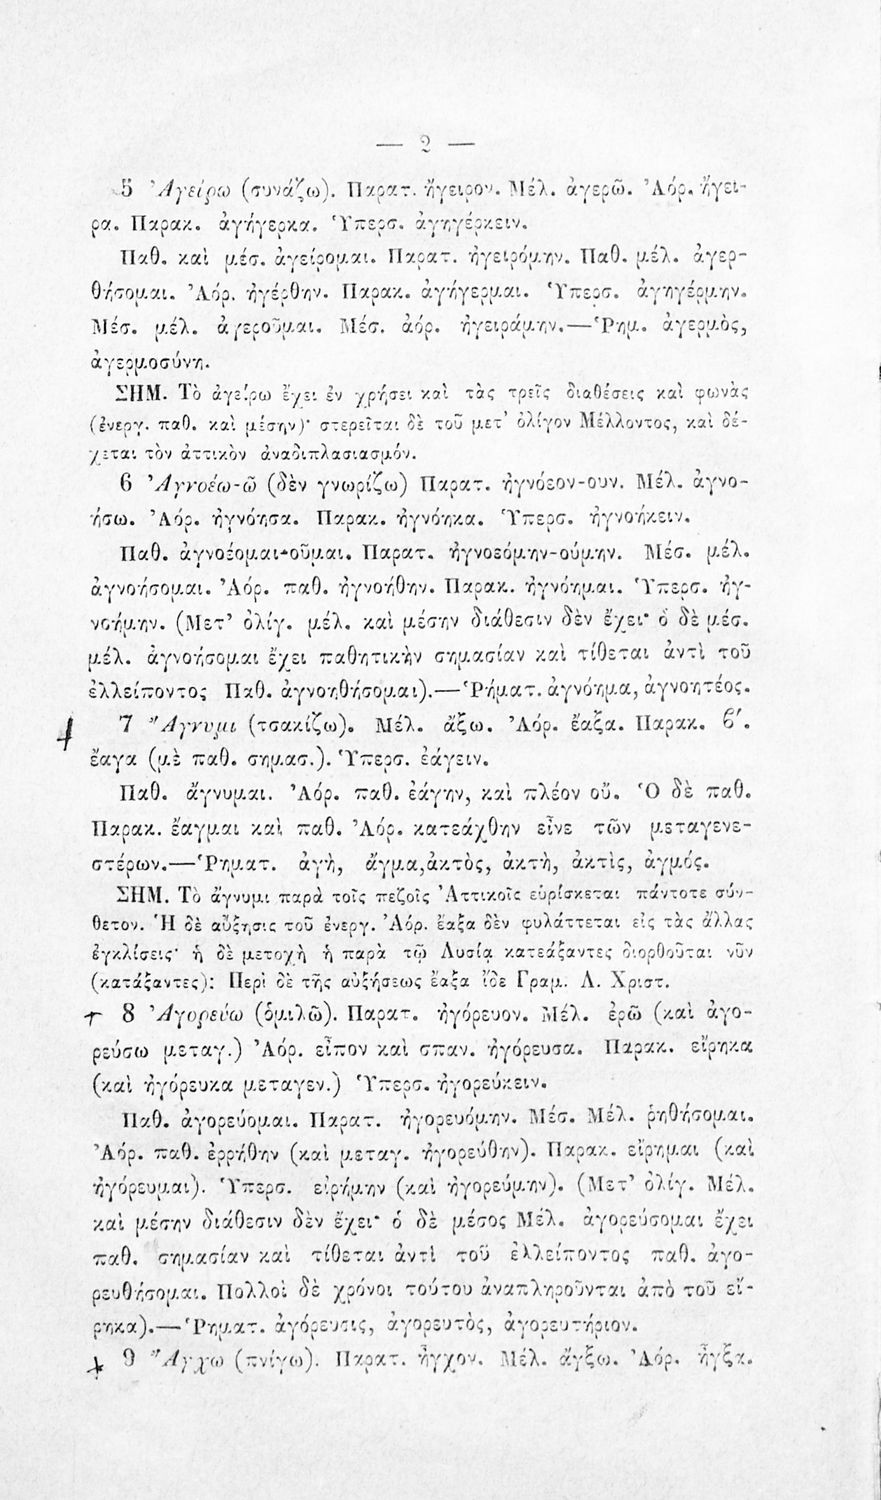 — 2 —
5 Ἀγείρω (συνάζω). Παρατ. ἤγειρον. Μέλ. ἀγερῶ. Ἀόρ. ἤγει-
ρα. Παρακ. ἀγήγερκα. Ὑπερσ. ἀγηγέρκειν.
Παθ. καὶ μέσ. ἀγείρομαι. Παρατ. ἠγειρόμην. Παθ. μέλ. ἀγερ-
θήσομαι. Ἀόρ. ἠγέρθην. Παρακ. ἀγήγερμαι. Ὑπερσ. ἀγηγέρμην.
Μέσ. μέλ. ἀγεροῦμαι. Μέσ. ἀόρ. ἠγειράμην.—Ῥημ. ἀγερμὸς,
ἀγερμοσύνη.
ΣΗΜ. Τὸ ἀγείρω ἔχει ἐν χρήσει καὶ τὰς τρεῖς διαθέσεις καὶ φωνὰς
(ἐνεργ. παθ. καὶ μέσην)· στερεῖται δὲ τοῦ μετ’ ὀλίγον Μέλλοντος, καὶ δέ-
χεται τὸν ἀττικὸν ἀναδιπλασιασμόν.
6 Ἀγνοέω-ῶ (δὲν γνωρίζω) Παρατ. ἠγνόεον-ουν. Μέλ. ἀγνο-
ήσω. Ἀόρ. ἠγνόησα. Παρακ. ἠγνόηκα. Ὑπερσ. ἠγνοήκειν.
Παθ. ἀγνοέομαι-οῦμαι. Παρατ. ἠγνοεόμην-ούμην. Μέσ. μέλ.
ἀγνοήσομαι. Ἀόρ. παθ. ἠγνοήθην. Παρακ. ἠγνόημαι. Ὑπερσ. ἠγ-
νοήμην. (Μετ’ ὀλίγ. μέλ. καὶ μέσην διάθεσιν δὲν ἔχει· ὁ δὲ μέσ.
μέλ. ἀγνοήσομαι ἔχει παθητικὴν σημασίαν καὶ τίθεται ἀντὶ τοῦ
ἐλλείποντος Παθ. ἀγνοηθήσομαι).—Ῥήματ. ἀγνόημα, ἀγνοητέος.
7 Ἄγνυμι (τσακίζω). Μέλ. ἄξω. Ἀόρ. ἔαξα. Παρακ. β′.
ἔαγα (μὲ παθ. σημασ.). Ὑπερσ. ἐάγειν.
Παθ. ἄγνυμαι. Ἀόρ. παθ. ἐάγην, καὶ πλέον οὔ. Ὁ δὲ παθ.
Παρακ. ἔαγμαι καὶ παθ. Ἀόρ. κατεάχθην εἶνε τῶν μεταγενε-
στέρων.—Ῥηματ. ἀγὴ, ἄγμα, ἀκτὸς, ἀκτὴ, ἀκτὶς, ἀγμός.
ΣΗΜ. Τὸ ἄγνυμι παρὰ τοῖς πεζοῖς Ἀττικοῖς εὑρίσκεται πάντοτε σύν-
θετον. Ἡ δὲ αὔξησις τοῦ ἐνεργ. Ἀόρ. ἔαξα δὲν φυλάττεται εἰς τὰς ἄλλας
ἐγκλίσεις· ἡ δὲ μετοχὴ ἡ παρὰ τῷ Λυσίᾳ κατεάξαντες διορθοῦται νῦν
(κατάξαντες): Περὶ δὲ τῆς αὐξήσεως ἔαξα ἴδε Γραμ. Λ. Χριστ.
8 Ἀγορεύω (ὁμιλῶ). Παρατ. ἠγόρευον. Μέλ. ἐρῶ (καὶ ἀγο-
ρεύσω μεταγ.) Ἀόρ. εἶπον καὶ σπαν. ἠγόρευσα. Παρακ. εἴρηκα
(καὶ ἠγόρευκα μεταγεν.) Ὑπερσ. ἠγορεύκειν.
Παθ. ἀγορεύομαι. Παρατ. ἠγορευόμην. Μέσ. Μέλ. ῥηθήσομαι.
Ἀόρ. παθ. ἐρρήθην (καὶ μεταγ. ἠγορεύθην). Παρακ. εἴρημαι (καὶ
ἠγόρευμαι). Ὑπερσ. εἰρήμην (καὶ ἠγορεύμην). (Μετ’ ὀλίγ. Μέλ.
καὶ μέσην διάθεσιν δὲν ἔχει· ὁ δὲ μέσος Μέλ. ἀγορεύσομαι ἔχει
παθ. σημασίαν καὶ τίθεται ἀντὶ τοῦ ἐλλείποντος παθ. ἀγο-
ρευθήσομαι. Πολλοὶ δὲ χρόνοι τούτου ἀναπληροῦνται ἀπὸ τοῦ εἴ-
ρηκα).—Ῥηματ. ἀγόρευσις, ἀγορευτὸς, ἀγορευτήριον.
9 Ἄγχω (πνίγω). Παρατ. ἦγχον. Μέλ. ἄγξω. Ἀόρ. ἦγξα.